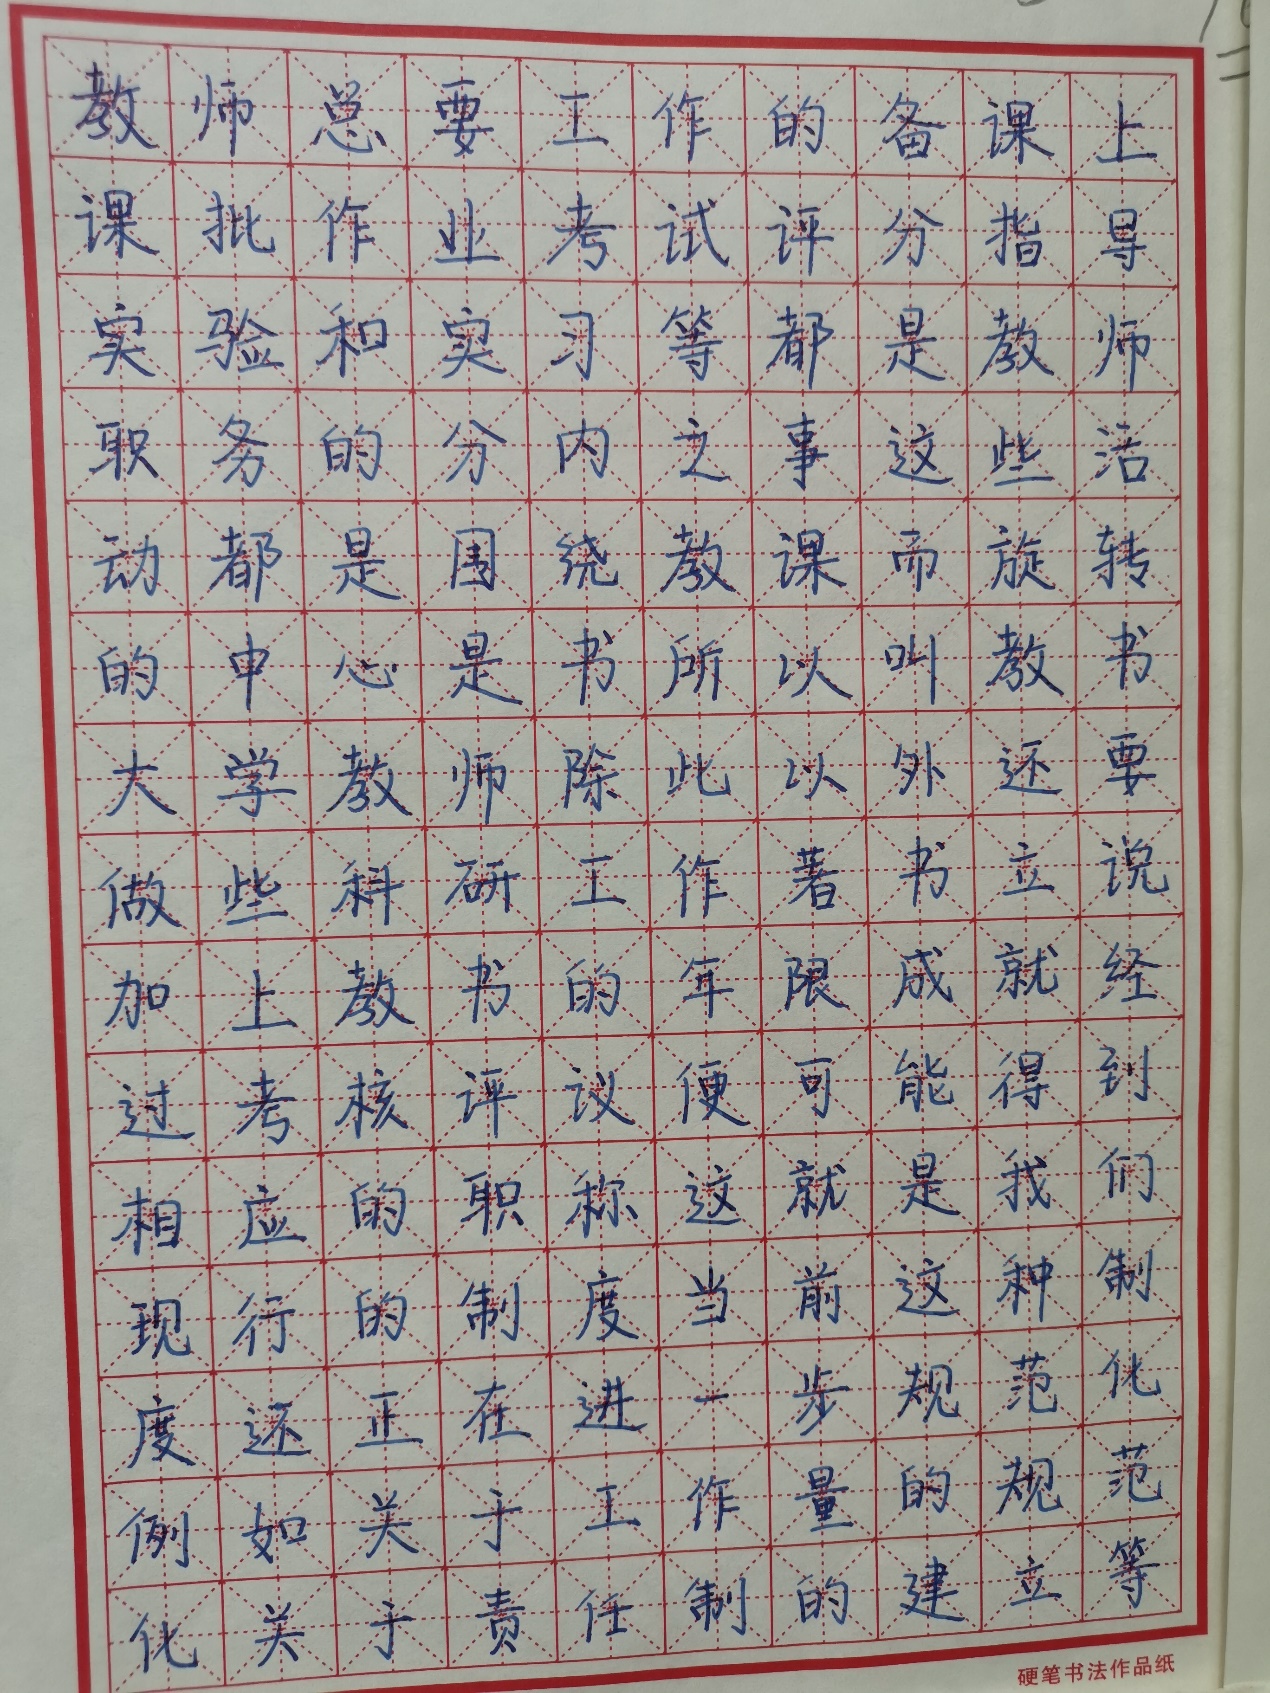 教师总要工作的备课上
课批作业考试评分指导
实验和实习等都是教师
职务的分内之事这些活
动都是围绕教课而旋转
的中心是书所以叫教书
大学教师除此以外还要
做些科研工作著书立说
加上教书的年限成就经
过考核评议便可能得到
相应的职称这就是我们
现行的制度当前这种制
度还正在进一步规范化
例如关于工作量的规范
化关于责任制的建立等
硬笔书法作品纸